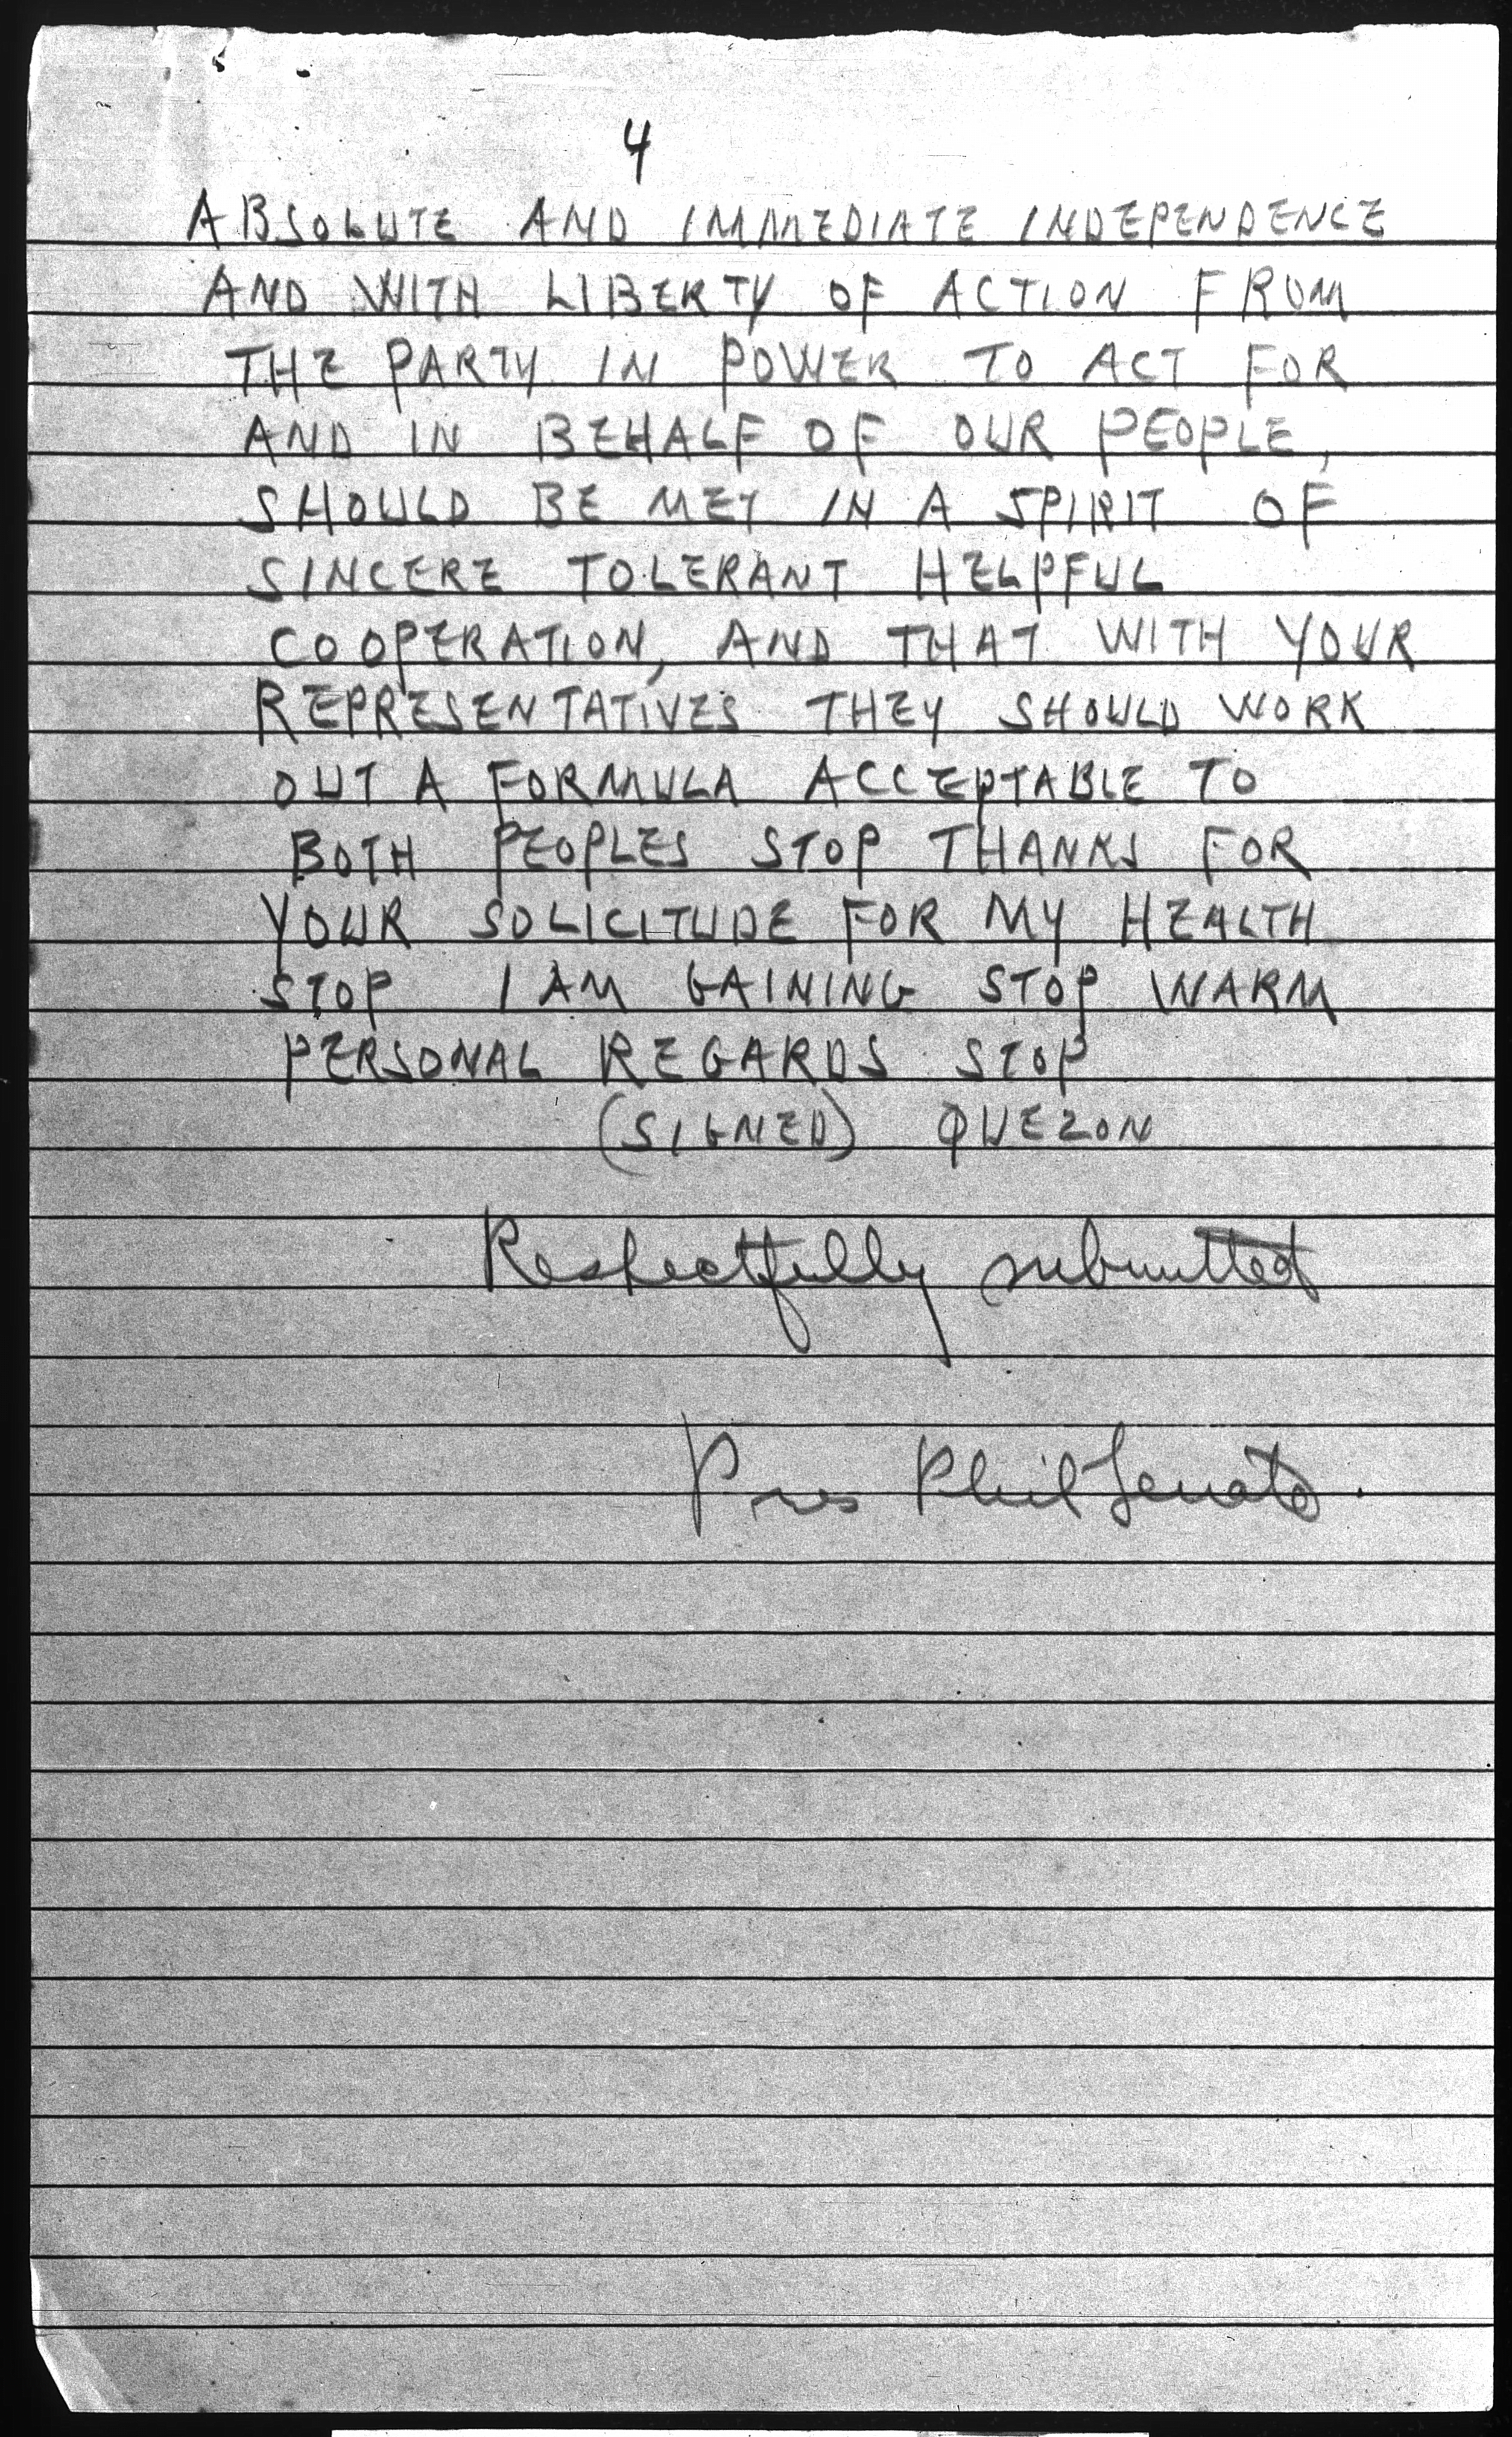 4
ABSOLUTE AND IMMEDIATE INDEPENDENCE
AND WITH LIBERTY OF ACTION FROM
THE PARTY IN POWER TO ACT FOR
AND IN BEHALF OF OUR PEOPLE,
SHOULD BE MET IN A SPIRIT OF
SINCERE TOLERANT HELPFUL
COOPERATION, AND THAT WITH YOUR
REPRESENTATIVES THEY SHOULD WORK
OUT A FORMULA ACCEPTABLE TO
BOTH PEOPLES STOP THANKS FOR
YOUR SOLICITUDE FOR MY HEALTH
STOP I AM GAINING STOP WARM
PERSONAL REGARDS STOP
(SIGNED) QUEZON
Respectfully submitted
Pres Phil Senate.